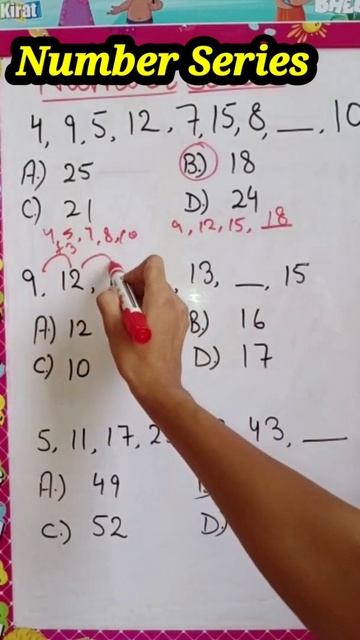 Kirat
Number Series
4, 9, 5, 12, 7, 15, 8, __, 10
A.) 25 B.) 18
C.) 21 D.) 24
4, 5, 7, 8, 10 9, 12, 15, 18
+3
9, 12, , 13, __, 15
A.) 12 B.) 16
C.) 10 D.) 17
5, 11, 17, 2 43, __
A.) 49
C.) 52 D.)